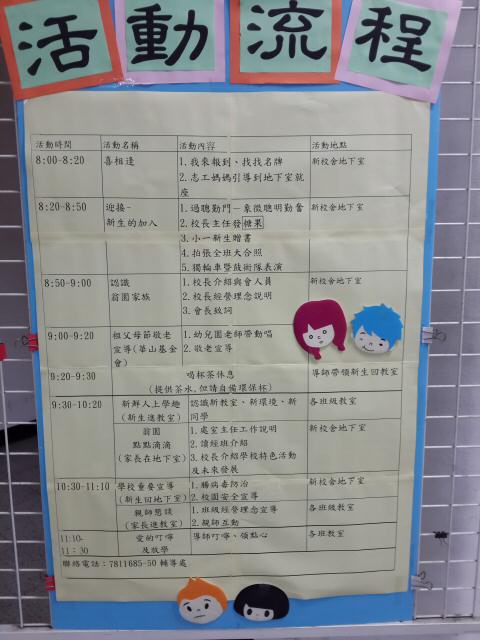 活動流程
活動時間 活動名稱 活動內容 活動地點
8:00-8:20 喜相逢 1.我來報到、找找名牌 新校舍地下室
2.志工媽媽引導到地下室就
座
8:20-8:50 迎接- 1.過聰勤門－象徵聰明勤奮 新校舍地下室
新生的加入 2.校長主任發糖果
3.小一新生贈書
4.拍張全班大合照
5.獨輪車暨鼓術隊表演
8:50-9:00 認識 1.校長介紹與會人員 新校舍地下室
翁園家族 2.校長經營理念說明
3.會長致詞
9:00-9:20 祖父母節敬老 1.幼兒園老師帶動唱
宣導(華山基金 2.敬老宣導
會)
9:20-9:30 喝杯茶休息 導師帶領新生回教室
(提供茶水,但請自備環保杯)
9:30-10:20 新鮮人上學趣 認識新教室、新環境、新 各班級教室
(新生進教室) 同學
翁園 1.處室主任工作說明 新校舍地下室
點點滴滴 2.讀經班介紹
(家長在地下室) 3.校長介紹學校特色活動
及未來發展
10:30-11:10 學校重要宣導 1.腸病毒防治 新校舍地下室
(新生回地下室) 2.校園安全宣導
親師懇談 1.班級經營理念宣導 各班級教室
(家長進教室) 2.親師互動
11:10- 愛的叮嚀 導師叮嚀、領點心 各班教室
11：30 及放學
聯絡電話：7811685-50 輔導處